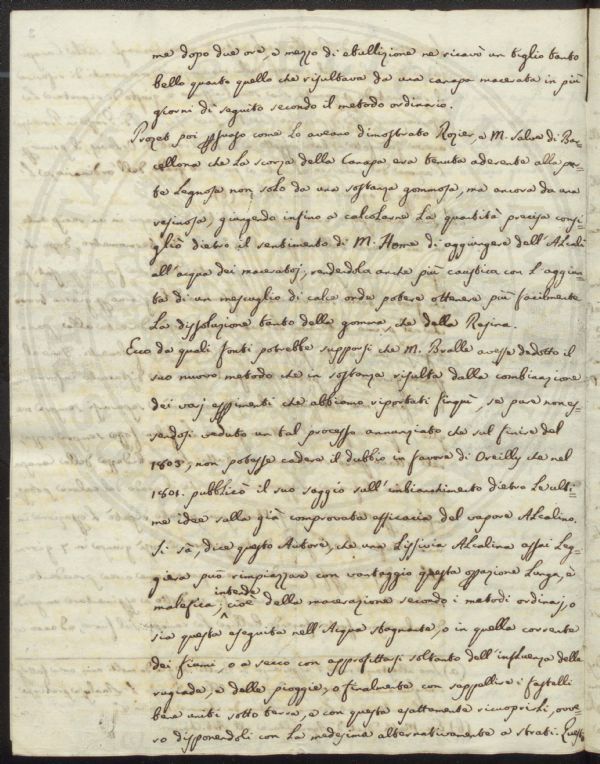 me dopo due ore, a mezzo di ebullizione ne ricavò un tiglio tanto
bello quanto quello che risultava da una canapa macerata in più
giorni di seguito secondo il metodo ordinario.
Prozet poi persuaso come Lo aveano dimostrato Rozier, e M. Salva di Bar-
cellona che La scorza della Canapa era tenuta aderente alla par-
te Legnosa non solo da una sostanza gommosa, ma ancora da una
resinosa, giungendo infino a calcolarne La quantità precisa consi-
gliò dietro il sentimento di M. Home di aggiungere dell'ALcali
all'acqua dei maceratoj, rendendola anche più caustica con L'aggiun-
ta di un mescuglio di calce onde potere ottenere più facilmente
La dissoluzione tanto della gomma, che della Resina.
Ecco da quali fonti potrebbe supporsi che M. Bralle avesse dedotto il
suo nuovo metodo che in sostanza risulta dalla combinazione
dei varj esperimenti che abbiamo riportati finquì, se pure non es-
sendosi veduto un tal processo annunziato che sul finire del
1803, non potesse cadere il dubbio in favore di Oreilly che nel
1801. pubblicò il suo saggio sull'imbianchimento dietro Le ulti-
me idee sulla già comprovata efficacia del vapore ALcalino.
Si sà, dice questo Autore, che una Lissivia ALcalina assai Leg-
giera può rimpiazzare con vantaggio questa operazione Lunga, e
intende
malefica, cioè della macerazione secondo i metodi ordinarj, o
sia questa eseguita nell'Acqua stagnante, o in quella corrente
dei fiumi, o a secco con approfittarsi soltanto dell'influenza della
rugiada, e delle pioggie, o finalmente con seppellire i fastelli
bene uniti sotto terra, e con questa esattamente ricuoprirli, ovve-
ro disponendoli con La medesima alternativamente a strati. Questi